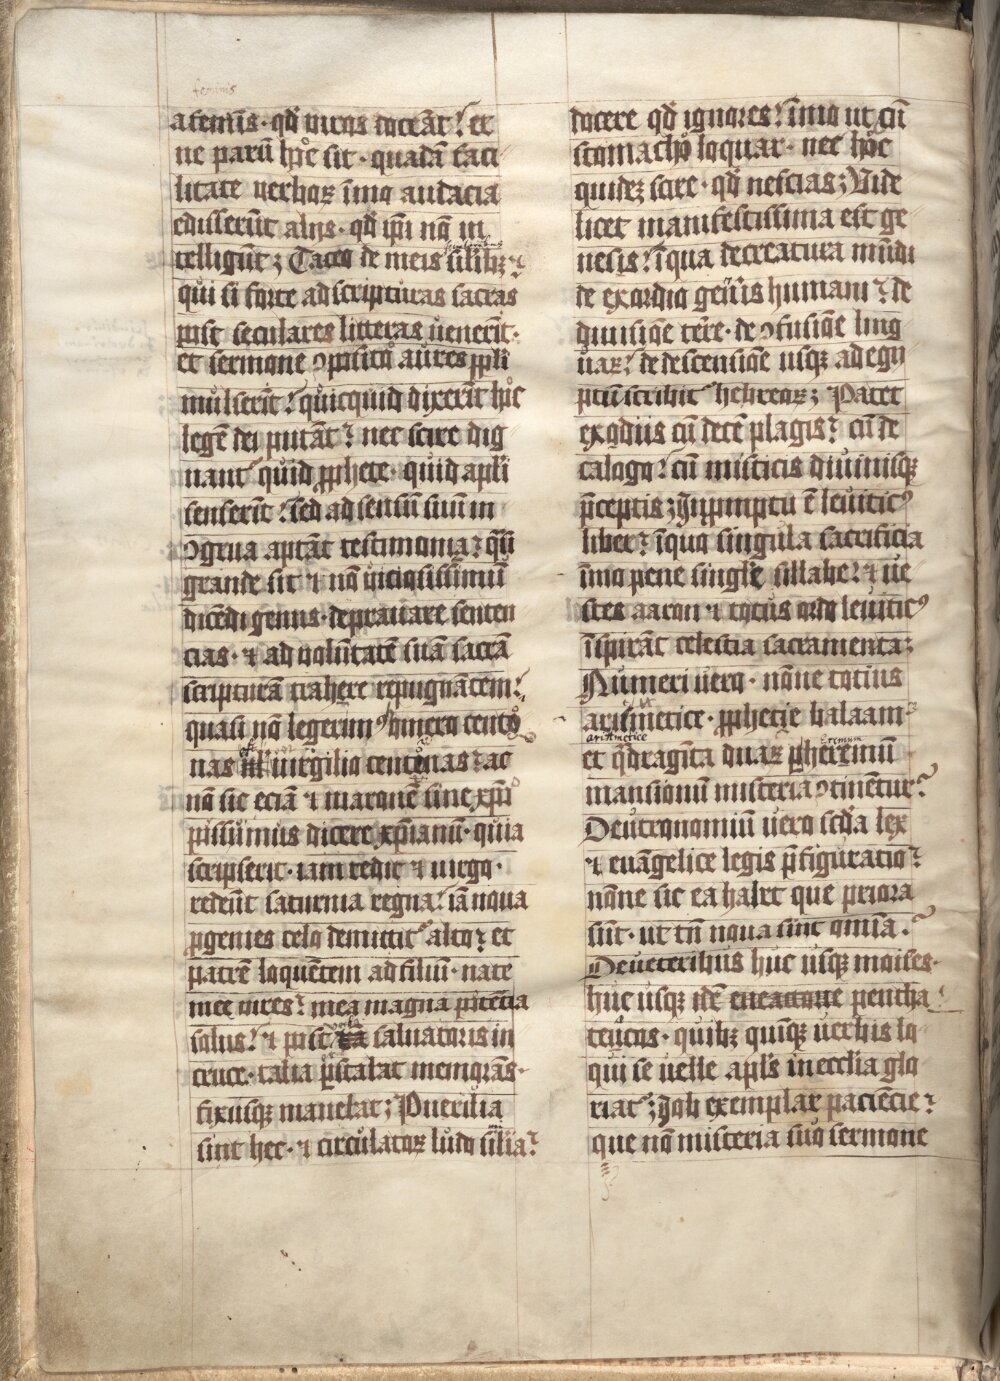 feminis
a femĩs · qd̾ viros doceãt ? et
ne parũ hoͨ sit · quadã faci
litate verboꝝ ĩmo audacia
edisserũt aliis · qd̾ ip̃i nõ in
telligũt ; Taceo de meis silĩbꝫ ⁊
qui si forte ad scripturas sacras
post seculares litteras venerĩt ·
et sermone ꝯposito aures ppl̃i
mulserĩt ? quicquid dixerĩt hoͨ
legẽ dei putãt ? nec scire dig
nant᷑ quid ꝓphete · quid apl̃i
senserĩt ? sed ad sensũ suũ in
ꝯgrua aptãt testimonia ? qũi
grande sit ⁊ nõ viciosissimũ
dicẽdi genus · deprauare senten
cias · ⁊ ad volũtatẽ suã sacrã
scripturã trahere repugnãtem ?
quasi nõ legerim᷒ homero cento
nas virgilio centonas ? ac
nõ sic eciã ⁊ maronẽ sine xp̃o
possumus dicere xp̃ianũ · quia
scripserit · iam redit ⁊ virgo ·
redeũt saturnia regna ? iã noua
ꝓgenies celo demittit᷑ alto ? et
patrẽ loquẽtem ad filiũ · nate
mee vires ? mea magna potẽcia
solus ? ⁊ post saluatoris in
cruce · talia ꝑstabat memorãs ·
fixusqꝫ manebat ; Puerilia
sunt hec · ⁊ circulatoꝝ ludo silĩa ?
docere qd̾ ignores ? ĩmo ut cũ
stomacho loquar · nec hoͨ
quideꝫ scire · qd̾ nescias ; Vide
licet manifestissima est ge
nesis ? ĩ qua de creatura mũdi
de exordio geñis humani ? de
diuisiõe terͬe · de ꝯfusiõe ling
uaꝝ ? de descensiõe usqꝫ ad egi
ptũ scribit᷑ hebreoꝝ ; Patet
exodus cũ decẽ plagis ? cũ de
calogo ? cũ misticis diuinisqꝫ
p̃ceptis ; In promptu ẽ leuitic᷒
liber ? ĩ quo singula sacrificia
ĩmo pene singl̃e sillabe ? ⁊ ve
stes aaron ⁊ totus ordo leuitic᷒
ĩspirãt celestia sacramenta ;
Numeri vero · nõne totius
arismetice · ꝓphetie balaam ?
arithmetice
et q̃draginta duaꝝ ꝑ heremũ
Eremum
mansionũ misteria ꝯtinẽtur ?
Deutronomiũ vero scd̃a lex
⁊ euãgelice legis p̃figuratio ?
nõne sic ea habet que priora
sũt · ut tñ noua sint om̃ia ?
De ueteribus huc usqꝫ moises ·
huc usqꝫ idẽ pentha
teucos · quibꝫ quinqꝫ verbis lo
qui se velle apl̃s in ecclia glo
riat᷑ ; Job exemplar paciẽcie ?
que nõ misteria suo sermone